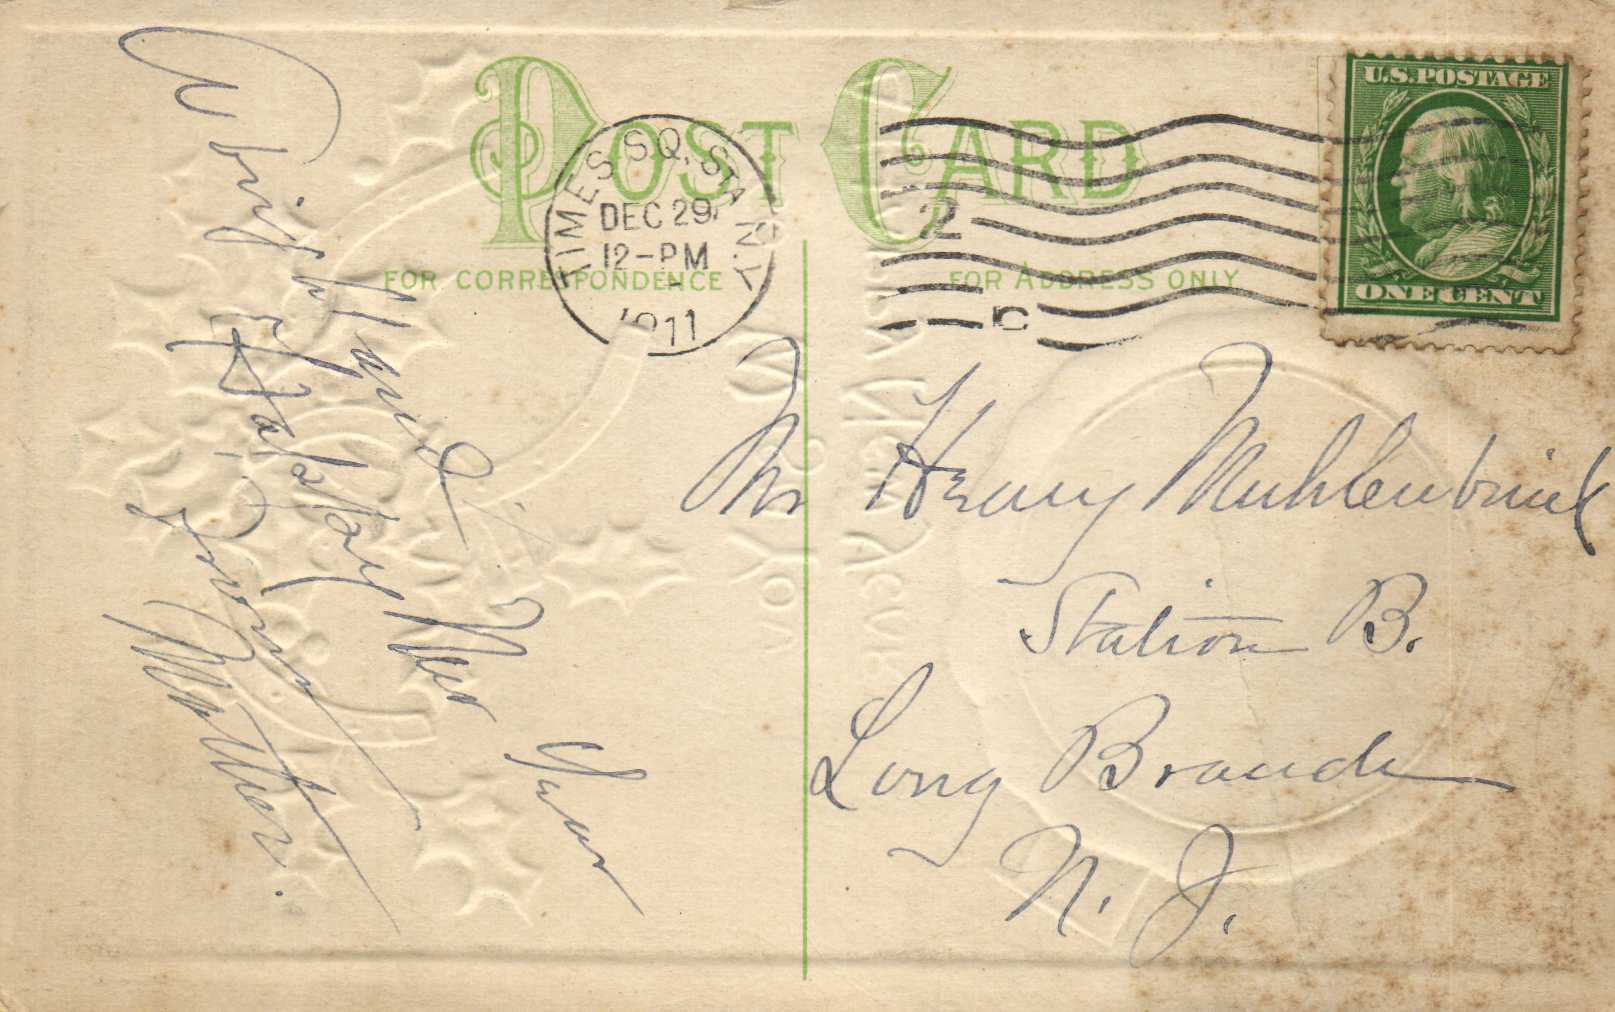 POST CARD
TIMES SQ. STA. N.Y.
DEC 29
12-PM
1911
2
U.S. POSTAGE
ONE CENT
FOR CORRESPONDENCE
FOR ADDRESS ONLY
A bright
and
Happy New Year
Loving
Mother.
Mr Henry Muhlenbrink
Station B.
Long Branch
N. J.